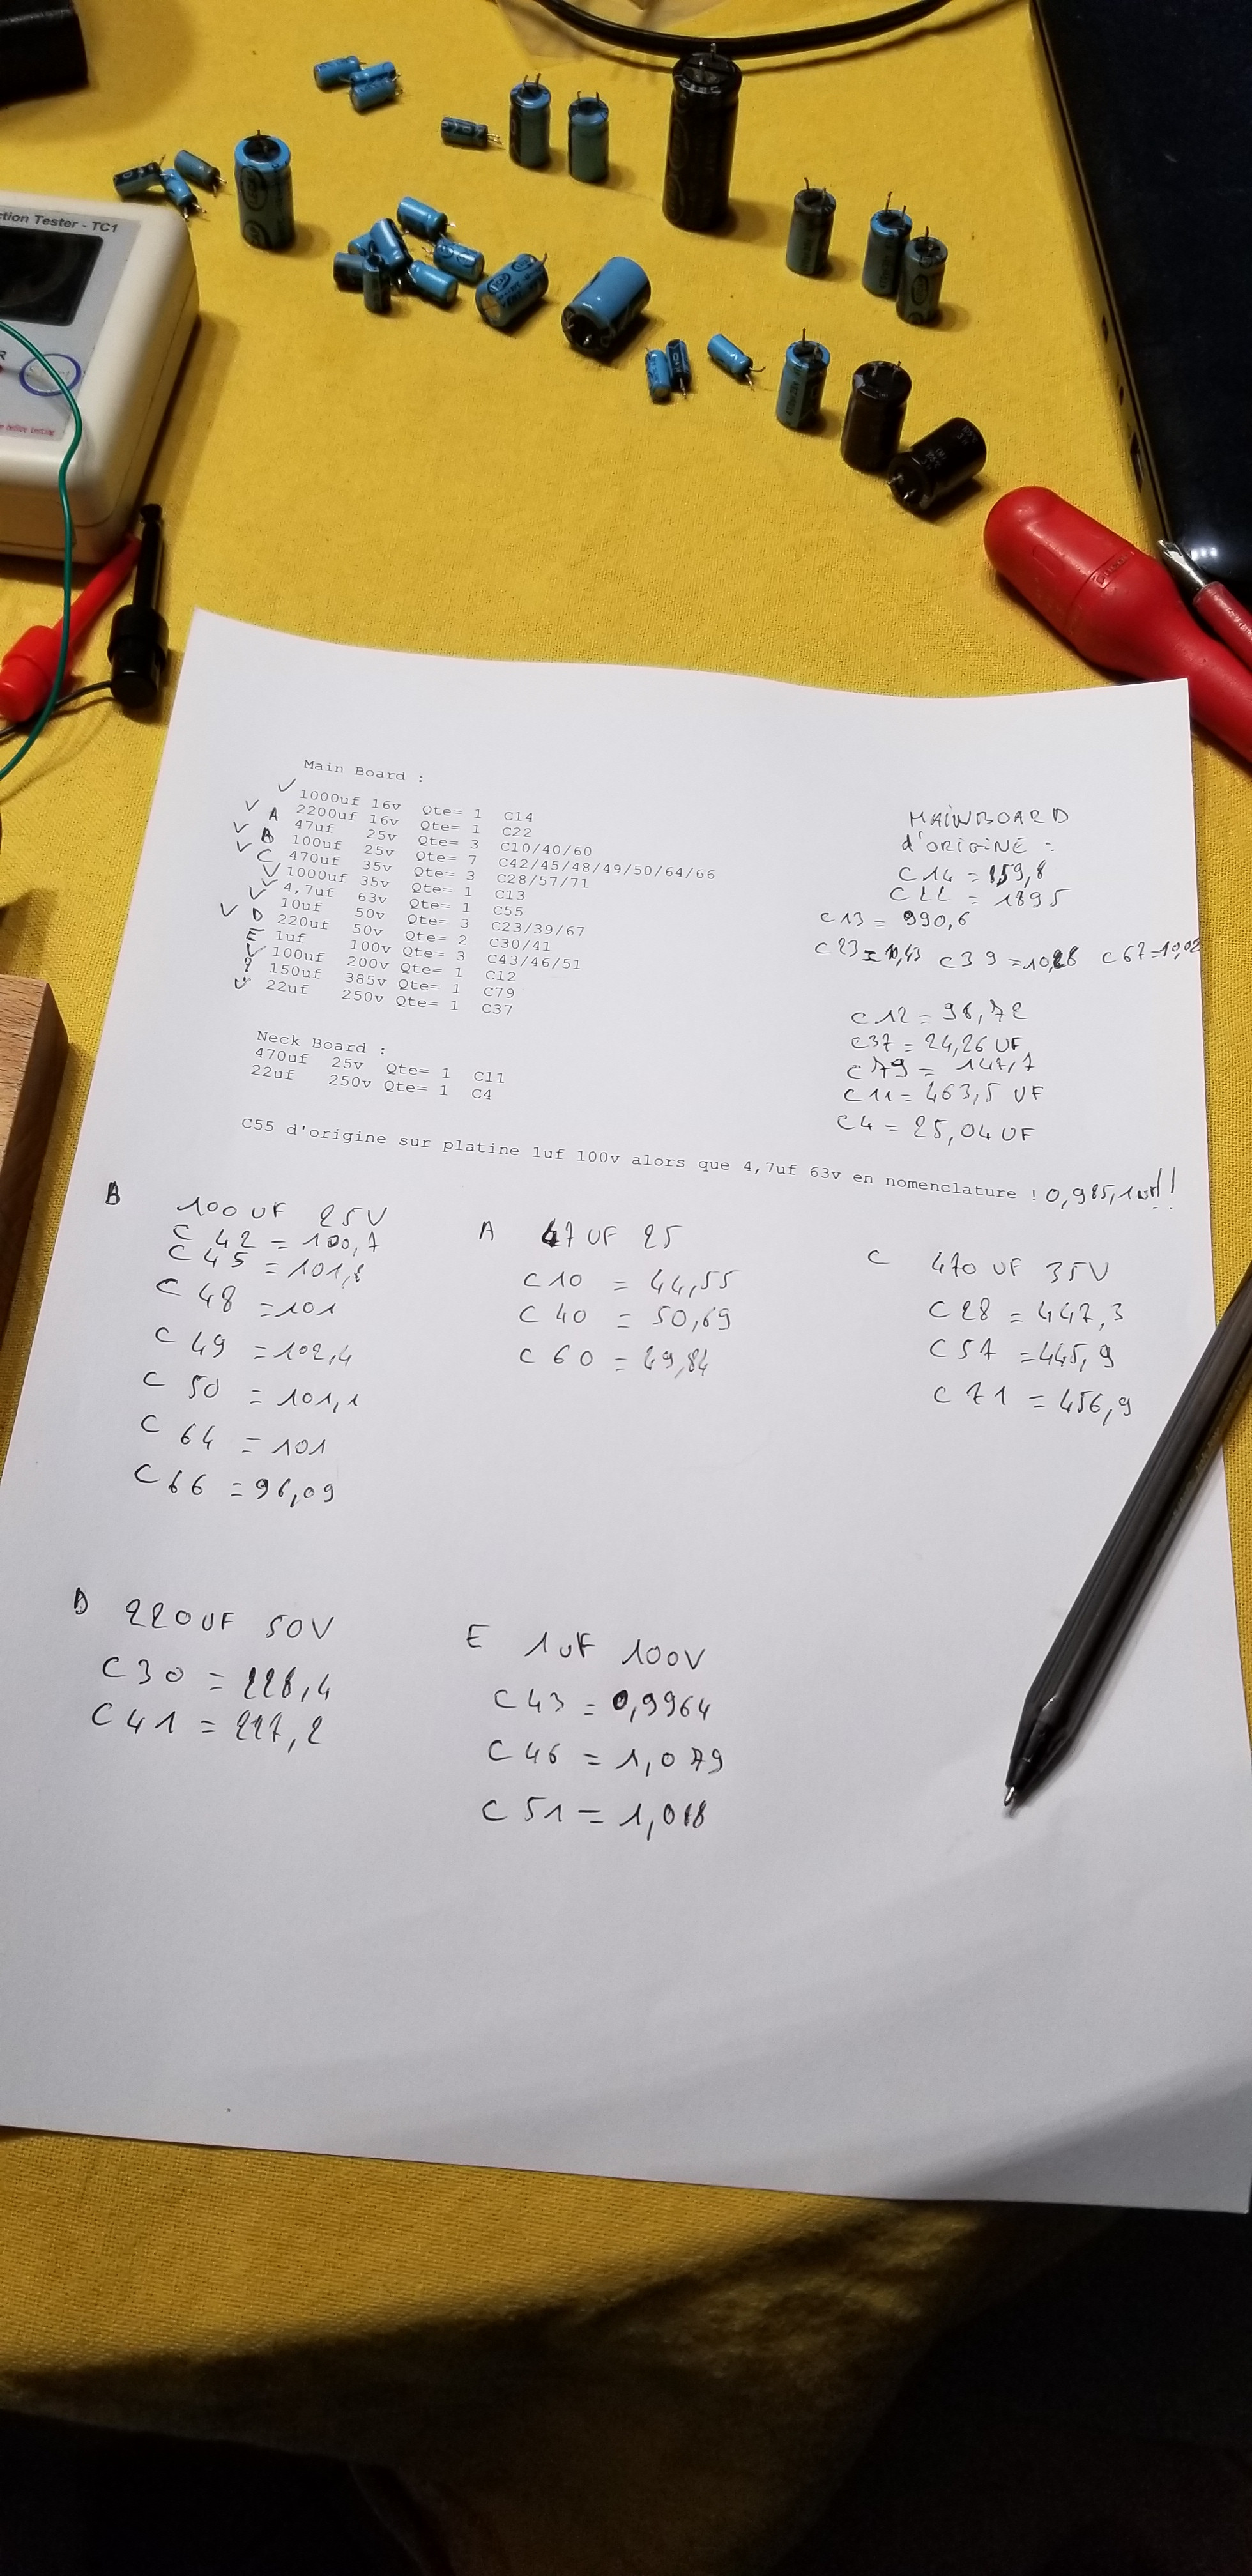 ction Tester - TC1
Main Board :
✓ 1000uf 16v Qte= 1 C14
✓ 2200uf 16v Qte= 1 C22
A 47uf 25v Qte= 3 C10/40/60
✓ B 100uf 25v Qte= 7 C42/45/48/49/50/64/66
✓ C 470uf 35v Qte= 3 C28/57/71
✓ 1000uf 35v Qte= 1 C13
✓ 4,7uf 63v Qte= 1 C55
✓ 10uf 50v Qte= 3 C23/39/67
✓ D 220uf 50v Qte= 2 C30/41
E 1uf 100v Qte= 3 C43/46/51
✓ 100uf 200v Qte= 1 C12
? 150uf 385v Qte= 1 C79
✓ 22uf 250v Qte= 1 C37
Neck Board :
470uf 25v Qte= 1 C11
22uf 250v Qte= 1 C4
MAINBOARD
d'ORIGINE :
C14 = 859,8
C22 = 1895
C13 = 990,6
C23 = 10,43 C39 = 10,28 C67 = 10,02
C12 = 98,72
C37 = 24,26 UF
C79 = 147,7
C11 = 463,5 UF
C4 = 25,04 UF
C55 d'origine sur platine 1uf 100v alors que 4,7uf 63v en nomenclature ! 0,985,1 !!
B 100 UF 25V
C 42 = 100,7
C 45 = 101,8
C 48 = 101
C 49 = 102,4
C 50 = 101,1
C 64 = 101
C 66 = 96,09
A 47 UF 25
C10 = 44,55
C 40 = 50,69
C 60 = 49,84
C 470 UF 35V
C28 = 447,3
C57 = 445,9
C 71 = 456,9
D 220UF 50V
C30 = 228,4
C41 = 227,2
E 1UF 100V
C43 = 0,9964
C46 = 1,079
C51 = 1,018